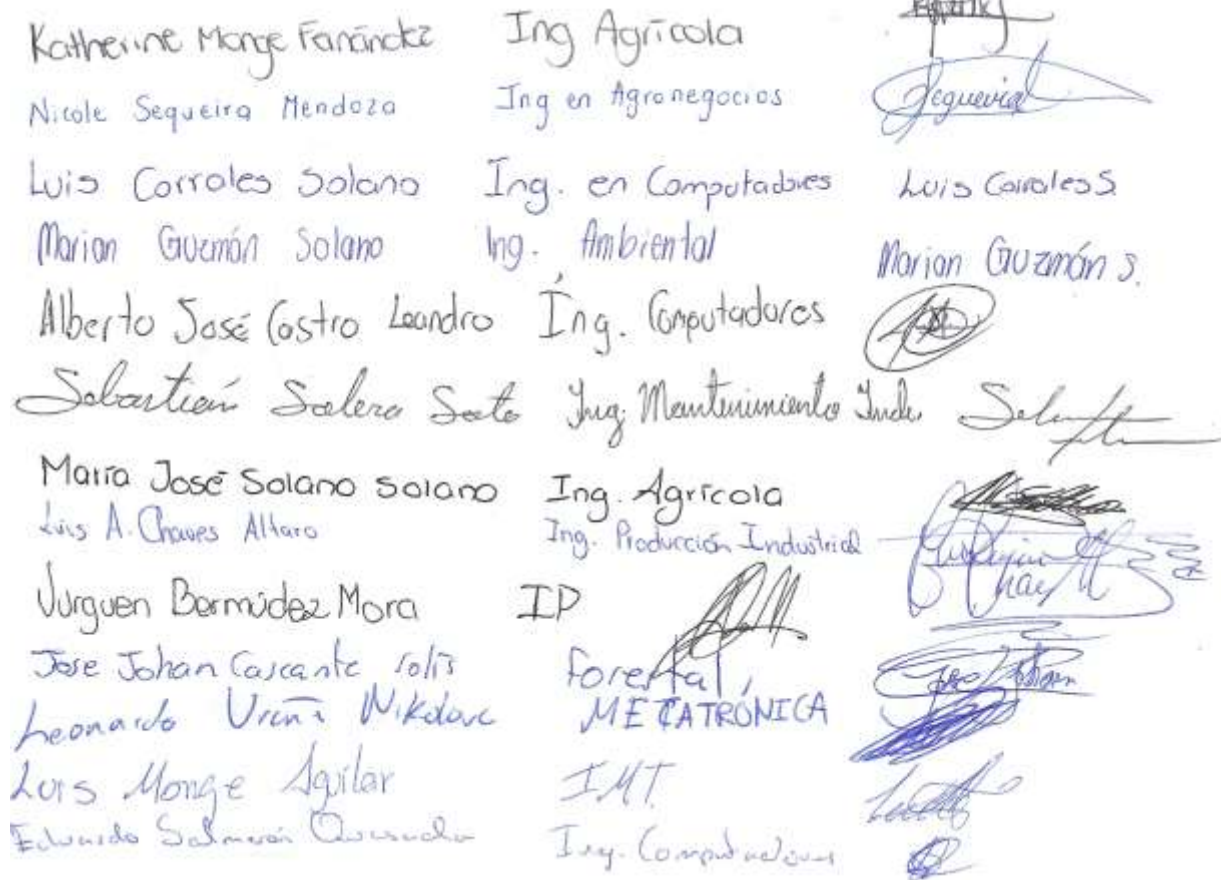 Katherine Monge Fernández Ing Agrícola
Nicole Sequeira Mendoza Ing en Agronegocios Sequeira
Luis Corrales Solano Ing. en Computadores Luis Corrales S.
Marian Guzmán Solano Ing. Ambiental Marian Guzmán S.
Alberto José Castro Leandro Ing. Computadores
Sebastián Solera Soto Ing. Mantenimiento Inds.
María José Solano Solano Ing. Agrícola
Luis A. Chaves Alfaro Ing. Producción Industrial
Jurguen Bermúdez Mora IP
Jose Johan Cascante Solís forestal
Leonardo Ureña MECATRÓNICA
Luis Monge Aguilar IMT
Eduardo Salmerón Quesada Ing. Computadores